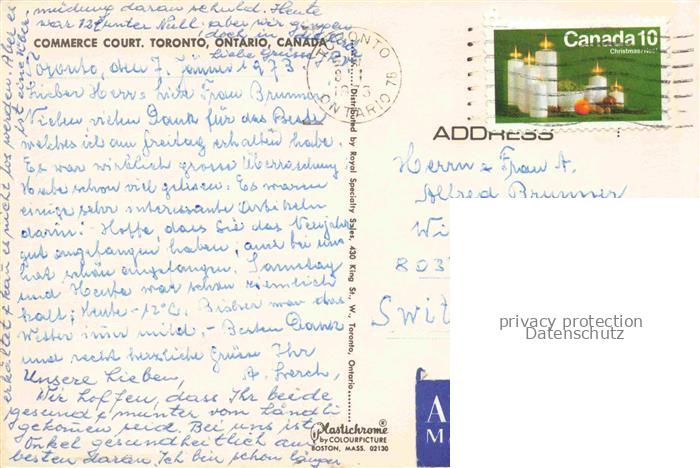 müdung daran schuld. Heute
war 12° unter Null. aber wir gingen
doch in
Liebe Grüsse
COMMERCE COURT. TORONTO, ONTARIO, CANADA
Toronto, den 7. Jänner 1973
Lieber Herr & liebe Frau Brunner
Vielen vielen Dank für das Buch
welches ich am Freitag erhalten habe.
Es war wirklich grosse Überraschung.
Habe schon viel gelesen. Es waren
einige sehr interessante Artikeln
darin. Hoffe, dass Sie das Neujahr
gut angefangen haben, auch bei uns
hat schön angefangen. Samstag
und Heute war schön ziemlich
kalt, Heute -12°C. Bisher war das
Wetter immer mild. - Besten Dank
und recht herzliche Grüsse Ihr
A. Lerch,
Unsere Lieben,
Wir hoffen, dass Ihr beide
gesund & munter vom Ländli
gekommen seid. Bei uns ist
Onkel gesundheitlich am
besten daran. Ich bin schon länger
erkältet & kann es nicht los werden. Aber es
ist eine
Distributed by Royal Specialty Sales, 430 King St., W., Toronto, Ontario
Plastichrome®
by COLOURPICTURE
BOSTON, MASS. 02130
TORONTO
1973
ONTARIO 76
Canada 10
Christmas/Noël
ADDRESS
Herrn & Frau A.
Alfred Brunner
Wi
803
Swit
privacy protection
Datenschutz
A
MA